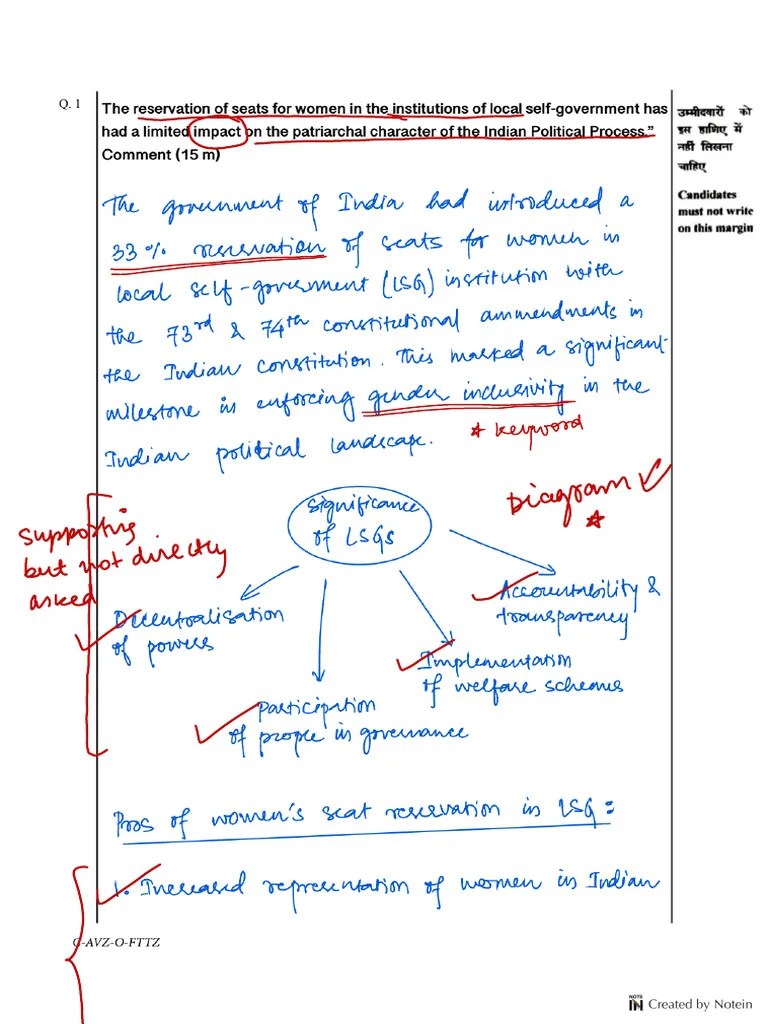 Q. 1
The reservation of seats for women in the institutions of local self-government has
had a limited impact on the patriarchal character of the Indian Political Process."
Comment (15 m)
उम्मीदवारों को
इस हाशिए में
नहीं लिखना
चाहिए
Candidates
must not write
on this margin
The government of India had introduced a
33% reservation of seats for women in
local self-government (LSG) institution with
the 73rd & 74th constitutional ammendments in
the Indian constitution. This marked a significant
milestone in enforcing gender inclusivity in the
* keyword
Indian political landscape.
Diagram
*
Significance
of LSGs
supporting
but not directly
asked
Accountability &
transparency
Decentralisation
of powers
Implementation
of welfare schemes
Participation
of people in governance
Pros of women's seat reservation in LSG:
1. Increased representation of women in Indian
C-AVZ-O-FTTZ
NOTE
IN Created by Notein